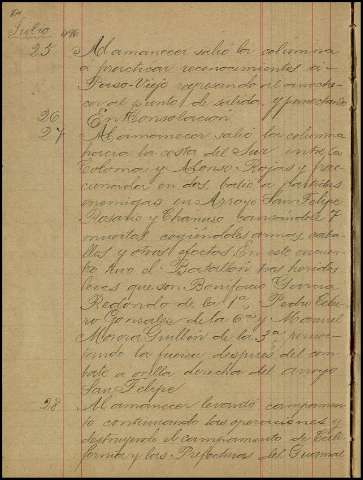 Julio 96
25 Al amanecer salió la columna
a practicar reconocimientos á
Viejo regresando al anoche-
cer al punto de salida y pernoctando
26 En Consolación
27 Al amanecer salió la columna
hacia la costa del Sur entre la
Coloma y Alonso Rojas y frac-
cionada en dos batió a partidas
enemigas en Arroyo San Felipe
Rosario y causandoles 7
muertos cogiéndoles armas caba-
llos y otros efectos. En este encuen-
tro tuvo el Batallón tres heridos
leves que son Bonifacio Garcia
Redondo de la 1ª, Pedro
Gonzalez de la 6ª y Manuel
Guillén de la 3ª
la fuerza despues del com-
bate a orilla derecha del arroyo
San Felipe
28 Al amanecer levantó campamen-
to continuando las operaciones y
destruyendo el campamento de Cali-
fornia y las Prefecturas del